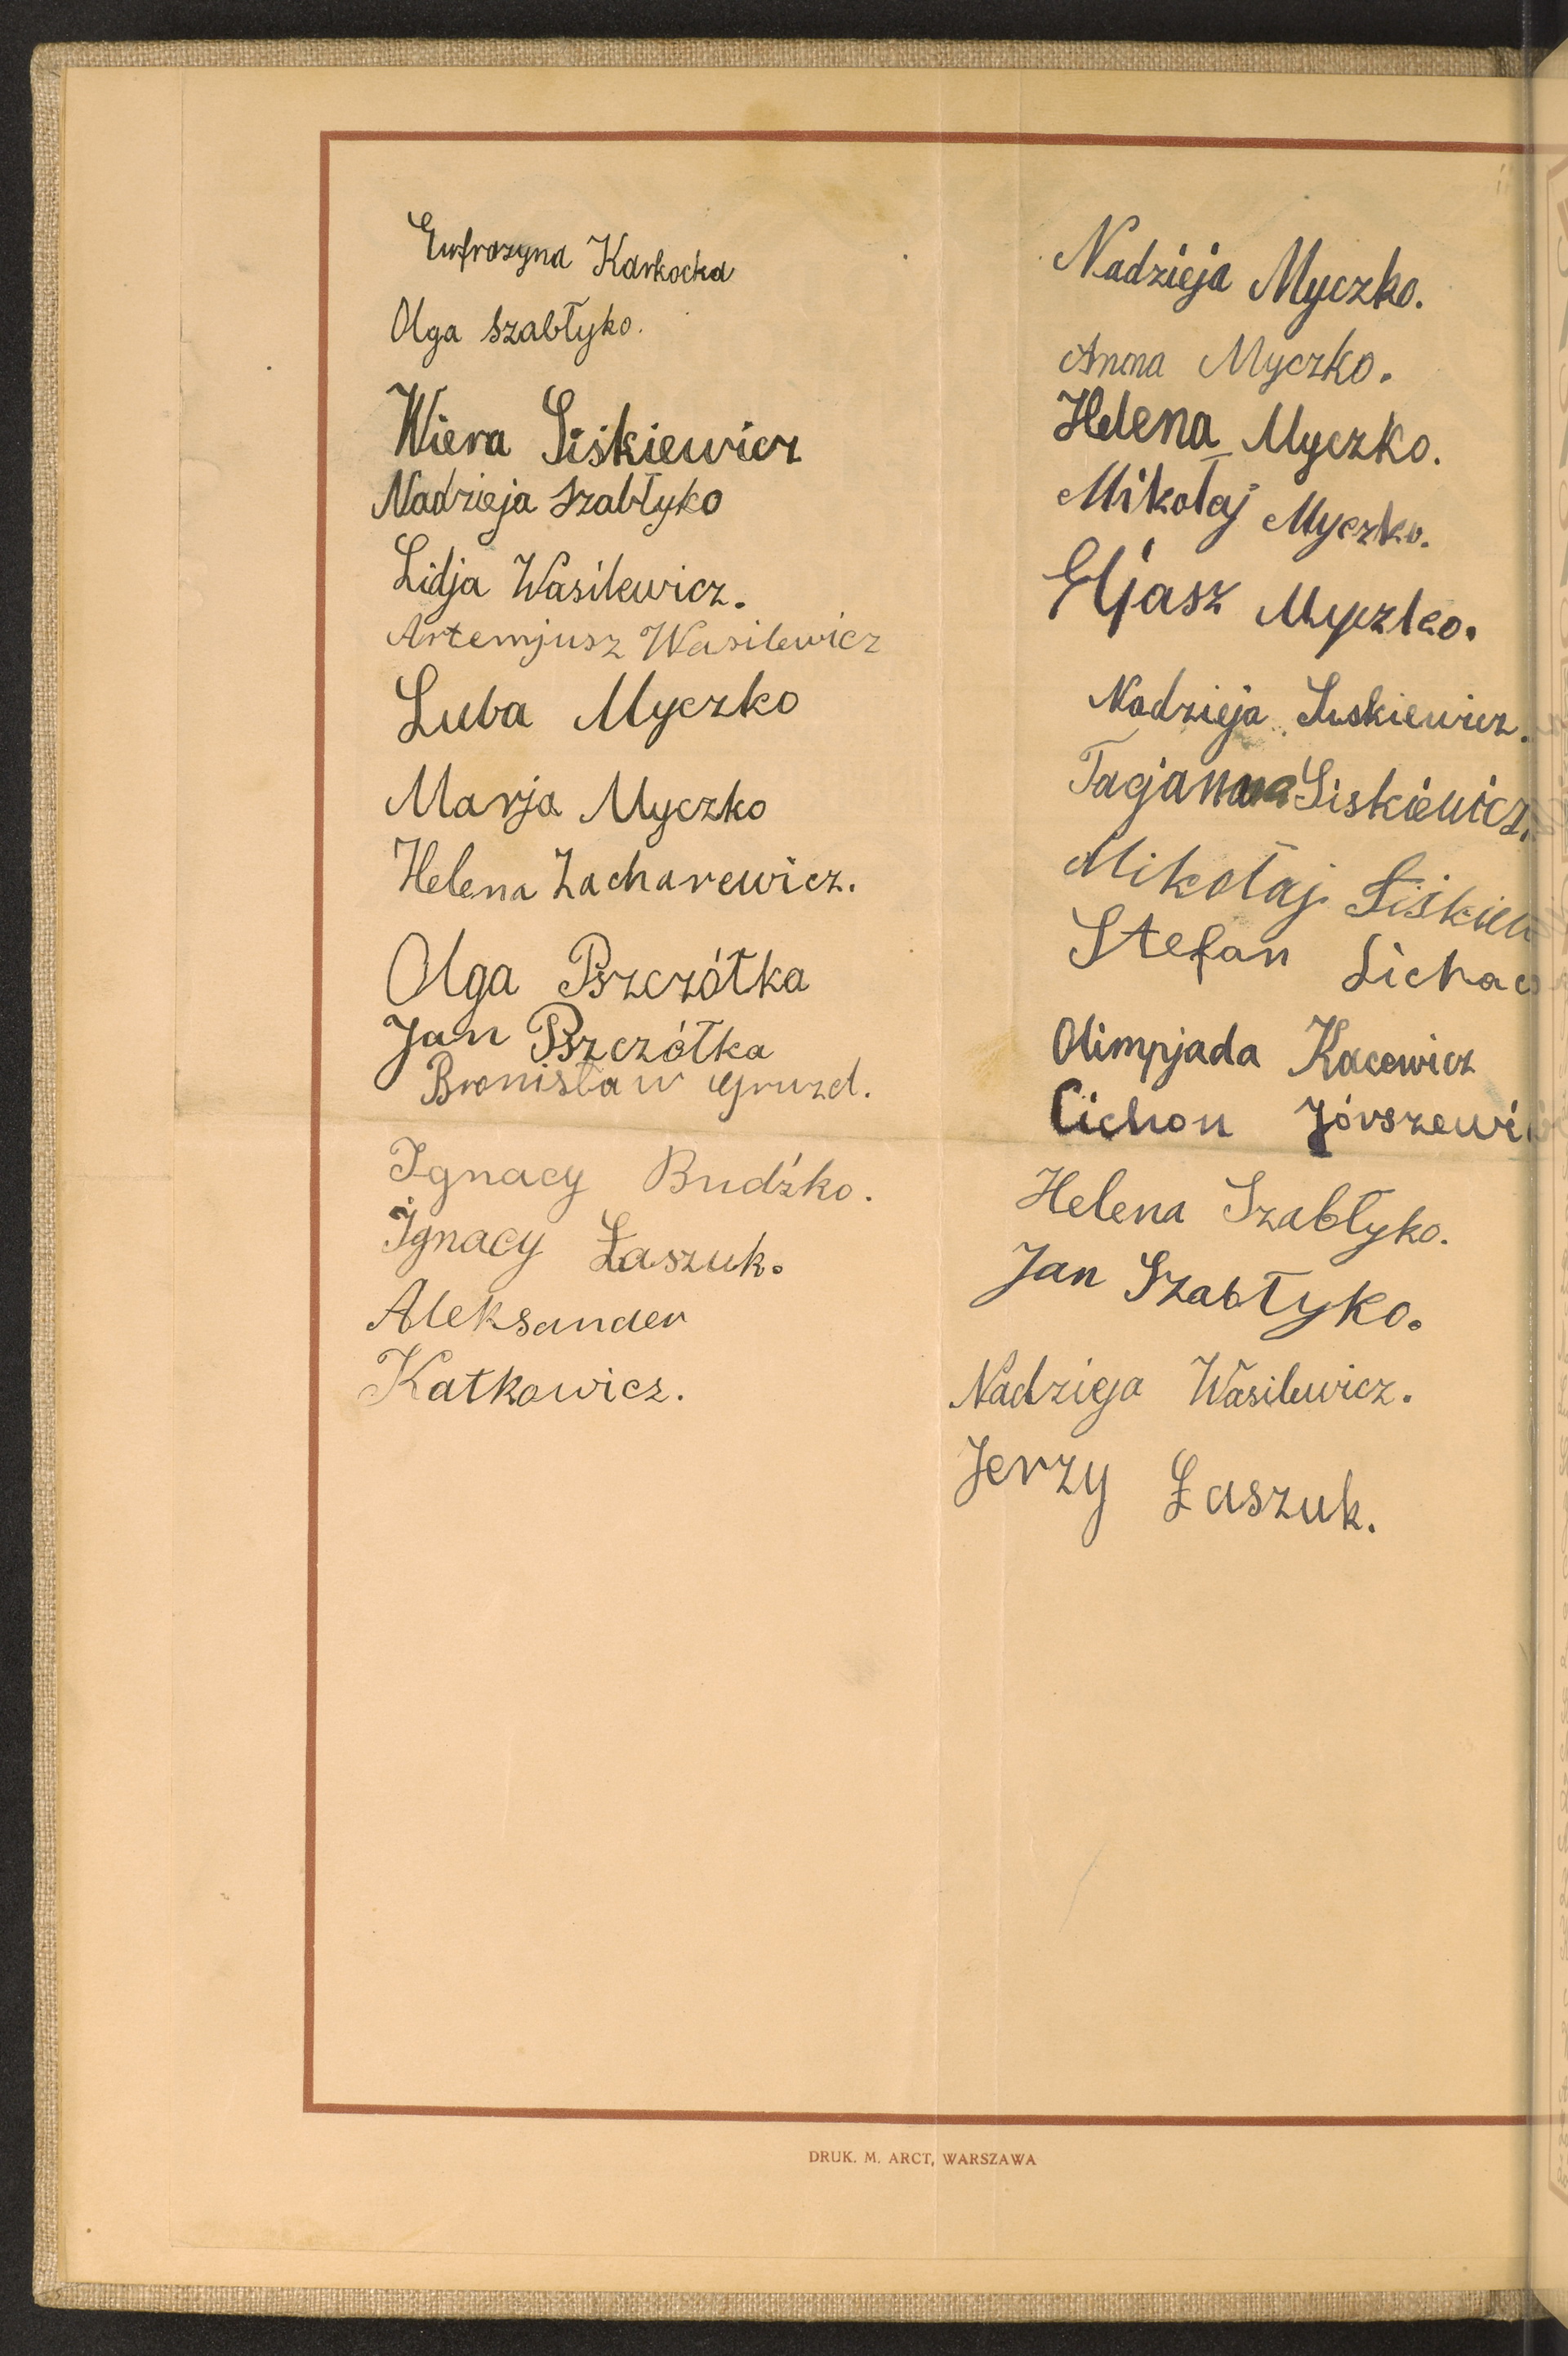 Eufrozyna Karkocka
Olga Szabłyko.
Wiera Siśkiewicz
Nadzieja Szabłyko
Lidja Wasilewicz.
Artemjusz Wasilewicz
Luba Myczko
Marja Myczko
Helena Zacharewicz.
Olga Pszczółka
Jan Pszczółka
Bronisław Gruzd.
Ignacy Budźko.
Ignacy Łaszuk.
Aleksander
Katkowicz.
Nadzieja Myczko.
Anna Myczko.
Helena Myczko.
Mikołaj Myczko.
Eljasz Myczko.
Nadzieja
Tacjanna Siskiewicz.
Mikołaj
Stefan
Olimpjada Kacewicz
Cichon
Helena Szabłyko.
Jan Szabłyko.
Nadzieja Wasilewicz.
Jerzy Łaszuk.
DRUK. M. ARCT, WARSZAWA